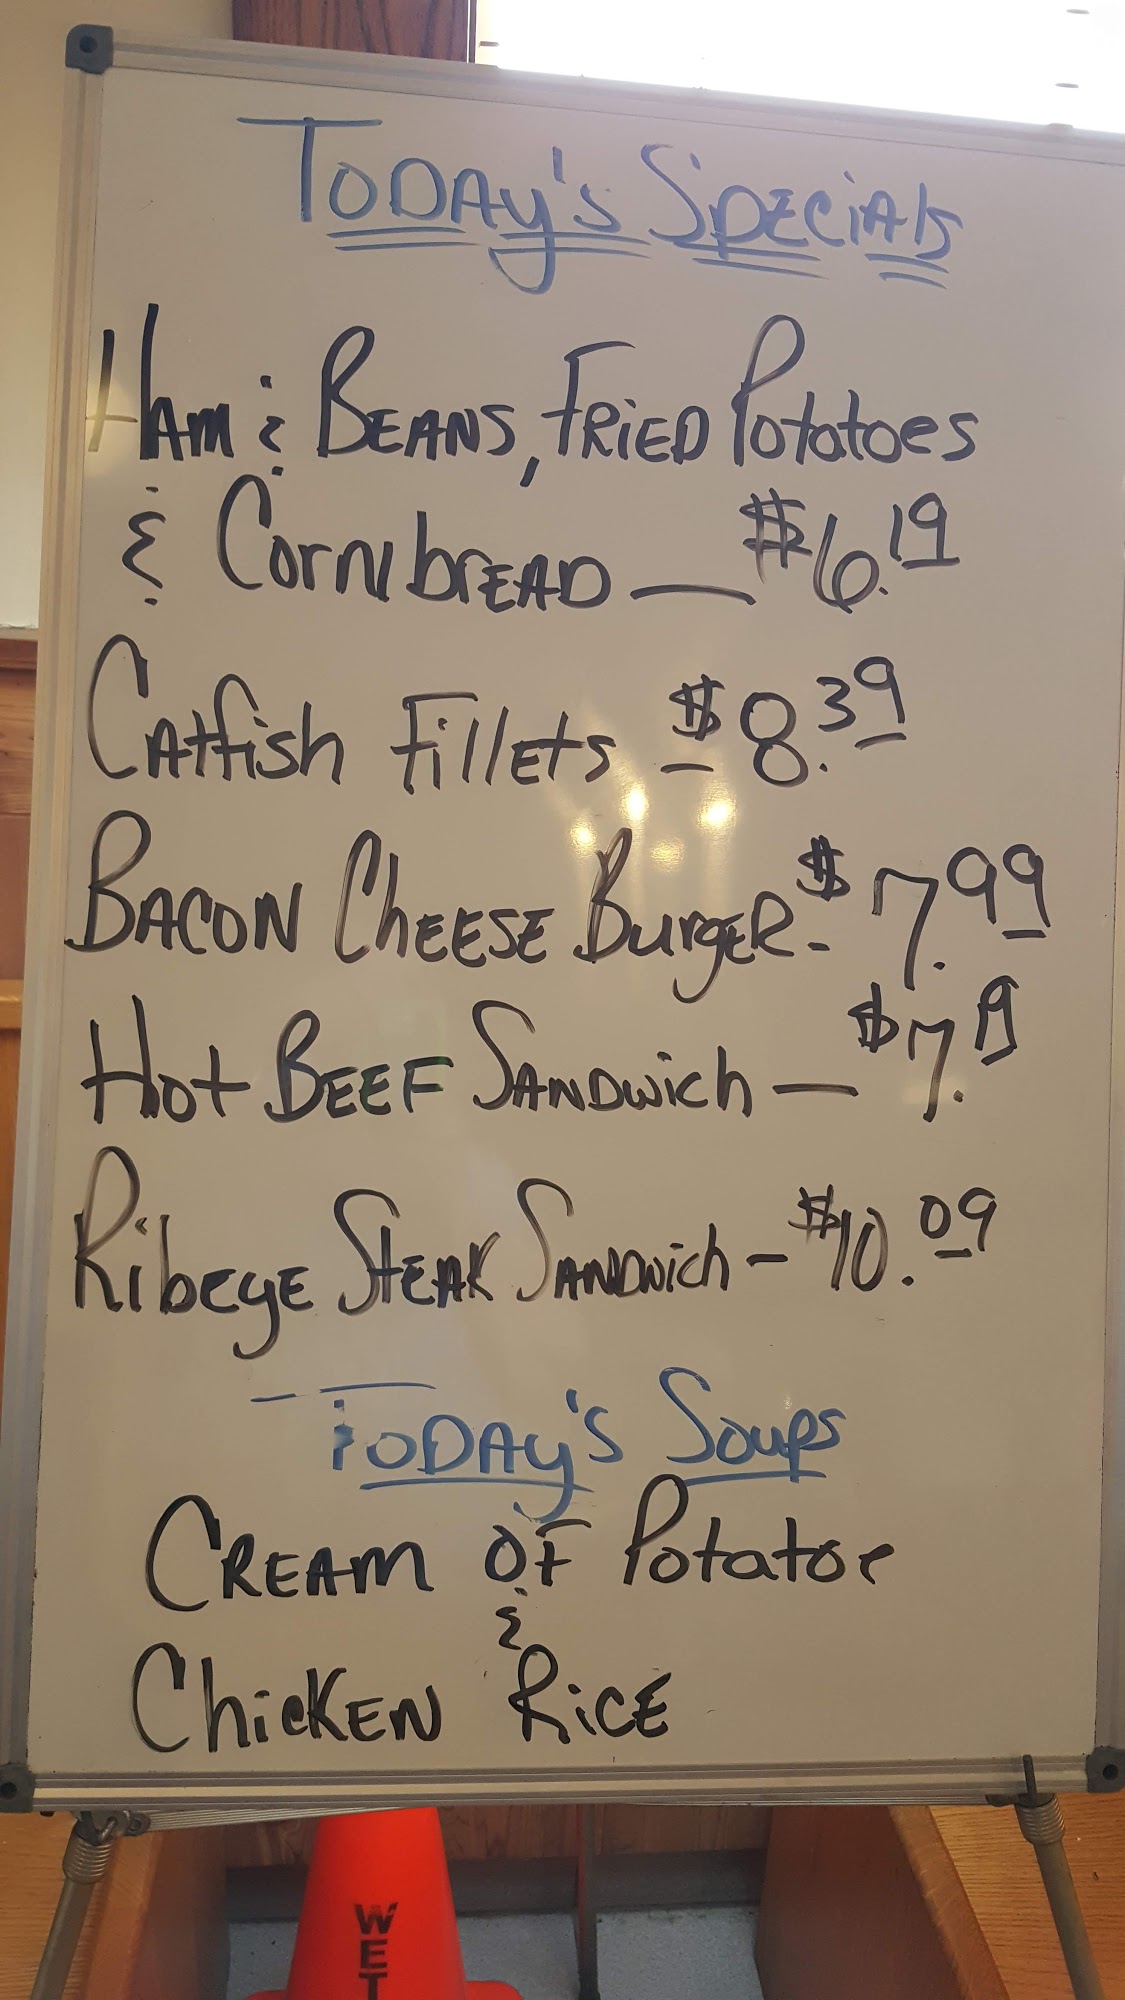 Today's Specials
Ham & Beans, Fried Potatoes
& Cornbread — $6.19
Catfish Fillets - $8.39
Bacon Cheese Burger - $7.99
Hot Beef Sandwich — $7.19
Ribeye Steak Sandwich - $10.09
Today's Soups
Cream of Potatoe
&
Chicken Rice
WET